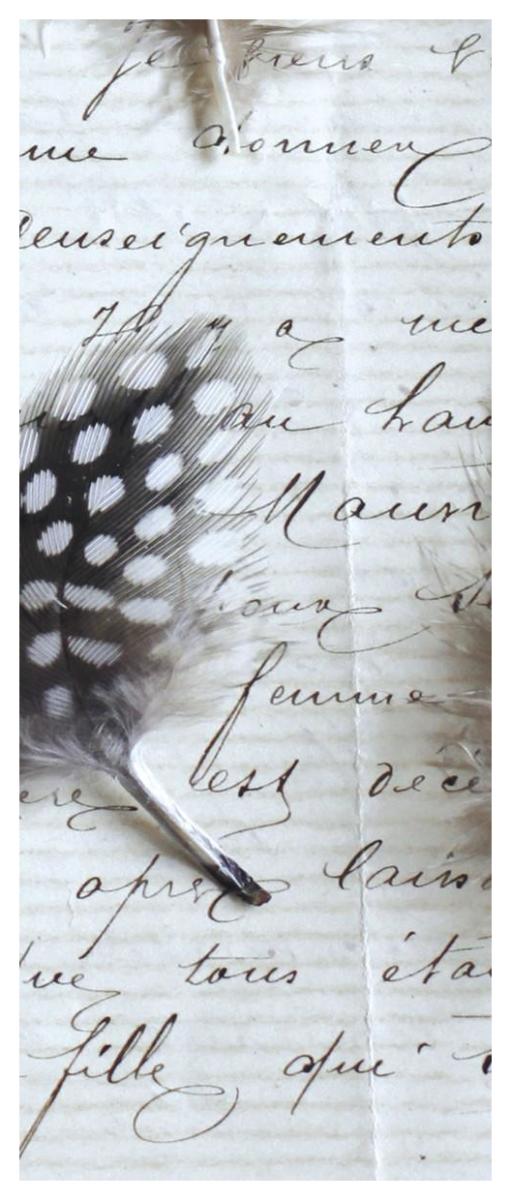 je tiens
me donner
renseignements
Il y a
au
Maur
pour
femme
est décé
apres laiss
tous éta
fille qui